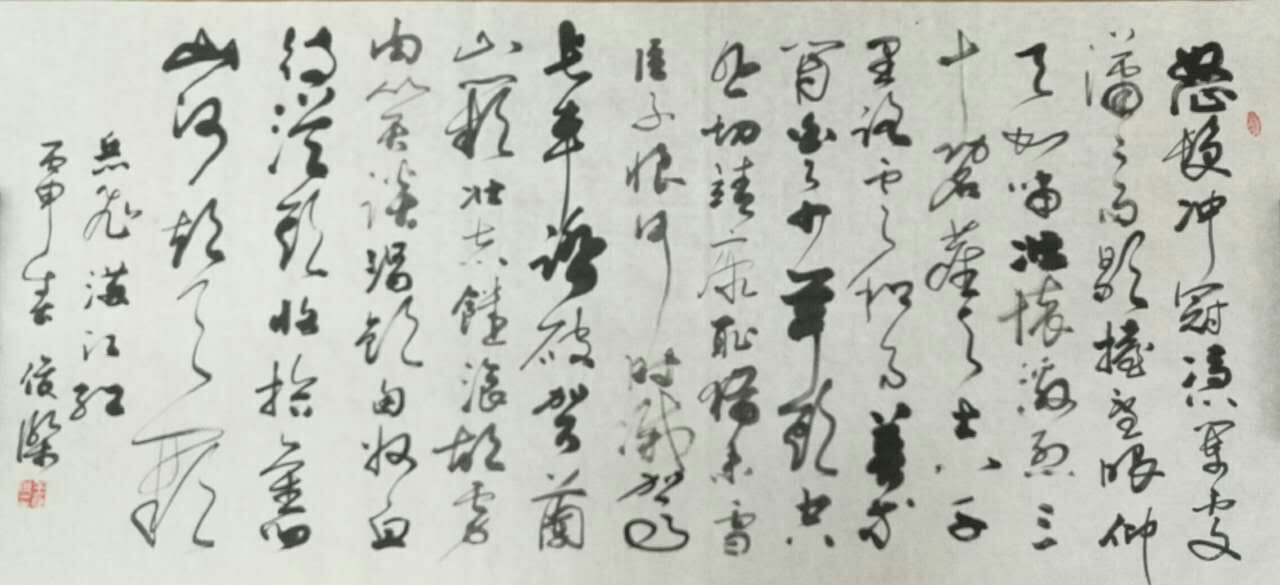 怒髮冲冠憑闌處
瀟々雨歇擡望眼仰
天長嘯壯懷激烈三
十功名塵與土八千
里路雲和月莫等
閒白了少年頭空
悲切靖康恥猶未雪
臣子恨何時滅駕
長車踏破賀蘭
山闕壯志饑餐胡虜
肉笑談渴飲匈奴血
待從頭收拾舊
山河朝天闕
岳飛滿江紅
丙申春俊